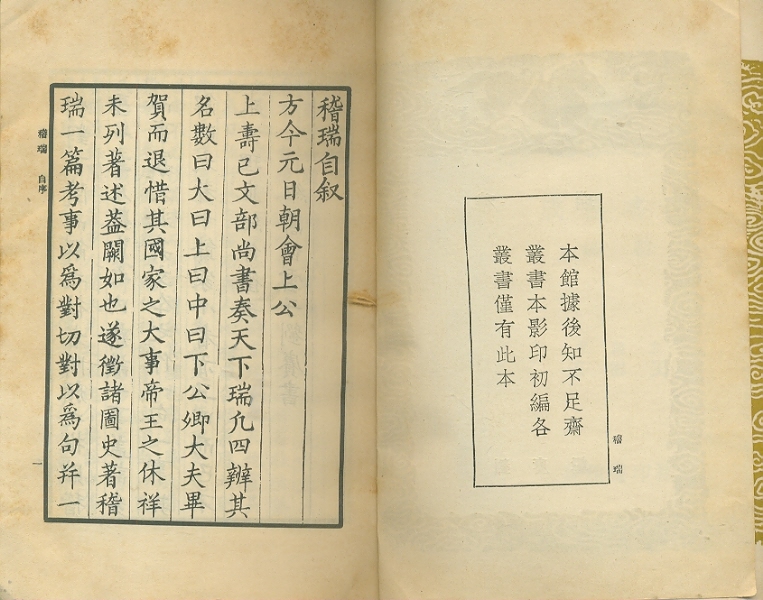 本館據後知不足齋
叢書本影印初編各
叢書僅有此本
稽瑞
稽瑞自叙
方今元日朝會上公
上壽已文部尚書奏天下瑞凢四辧其
名數曰大曰上曰中曰下公卿大夫畢
賀而退惜其國家之大事帝王之休祥
未列著述葢闕如也遂徵諸圖史著稽
瑞一篇考事以爲對切對以爲句幷一
稽瑞 自序
一